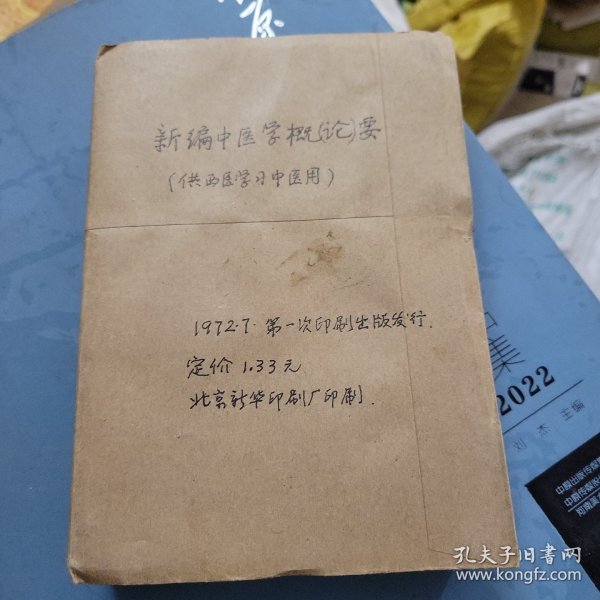 新编中医学概(论)要
(供西医学习中医用)
1972.7.第一次印刷出版发行.
定价 1.33元
北京新华印刷厂印刷.
集
2022
刘杰 主编
中原出版传媒
中原传媒股
河南美
孔夫子旧书网
www.kongfz.com